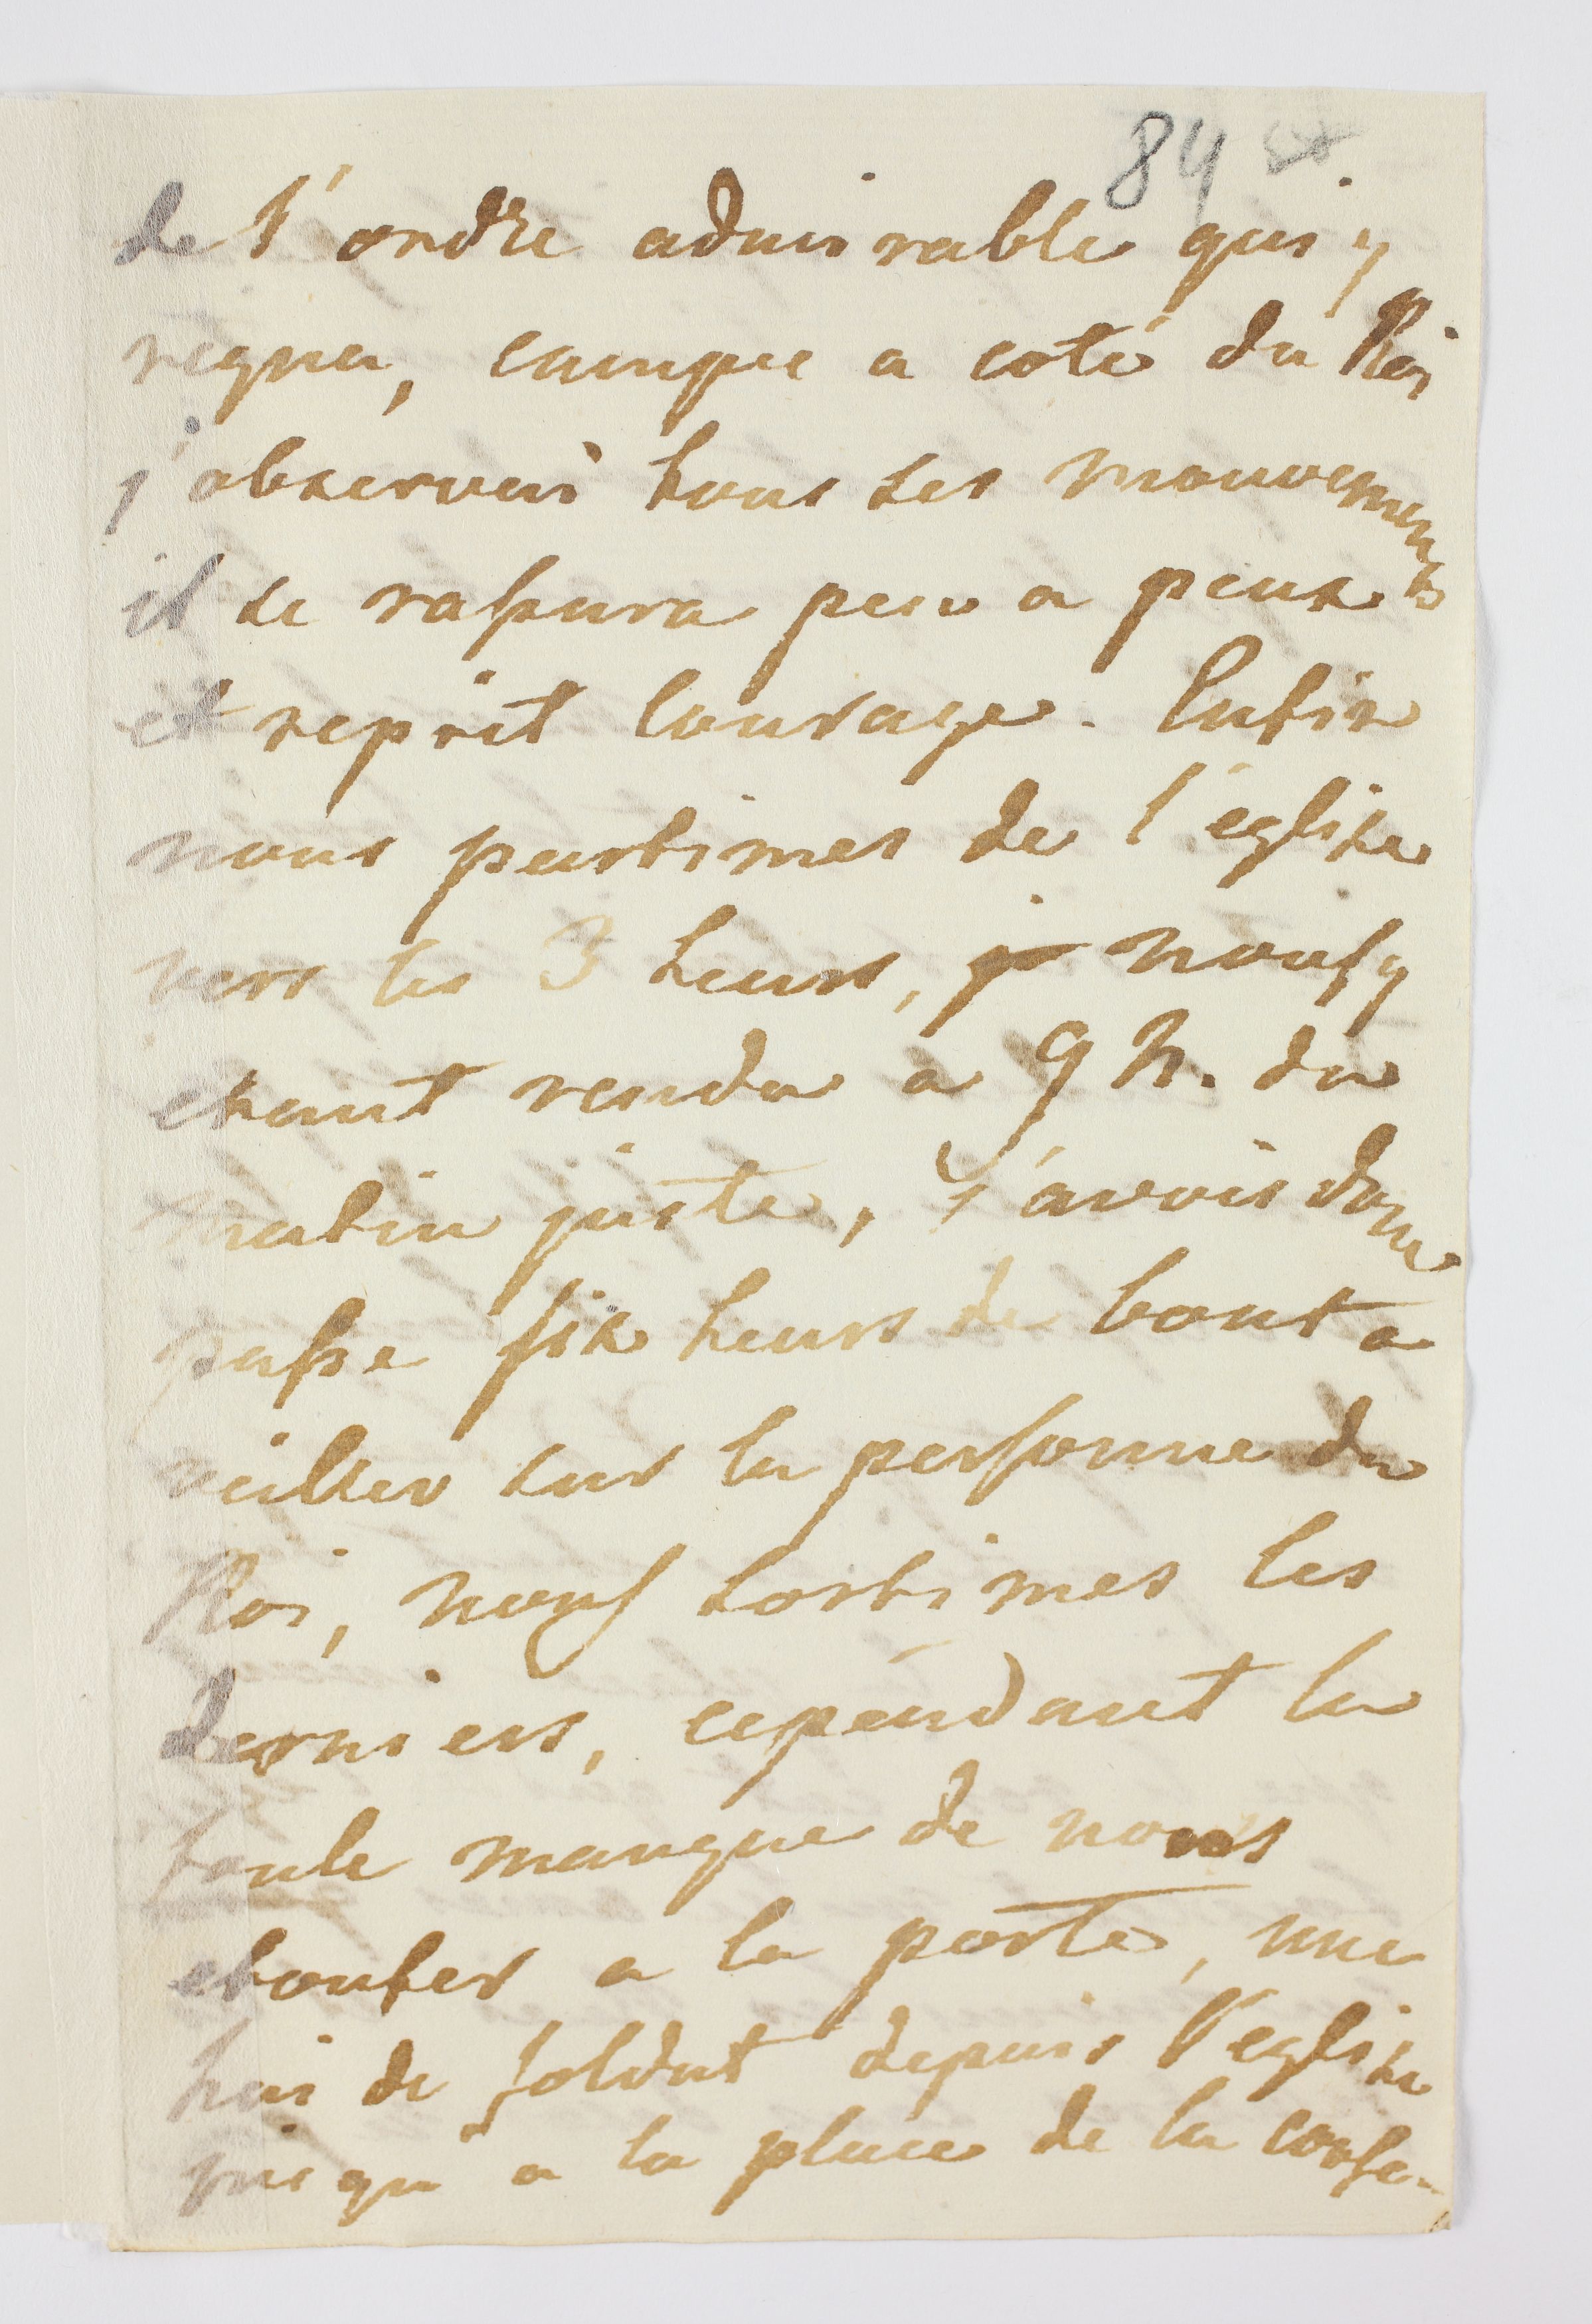 84
de l'ordre admirable qui y
regna, campée a coté du Roi
j'observais tous ses mouvements
il se raßura peu a peux
et reprit courage. Enfin
nous partimes de l'église
vers les 3 heurs, nous y
etant rendu a 9 h. du
matin juste, j'avois donc
paßé six heurs de bout a
veiller sur la personne du
Roi, nous sortimes les
derniers, cependant la
foule manque de nous
etoufer a la porte, une
hai de soldat depuis l'eglise
jusqu'a la place de la confe-